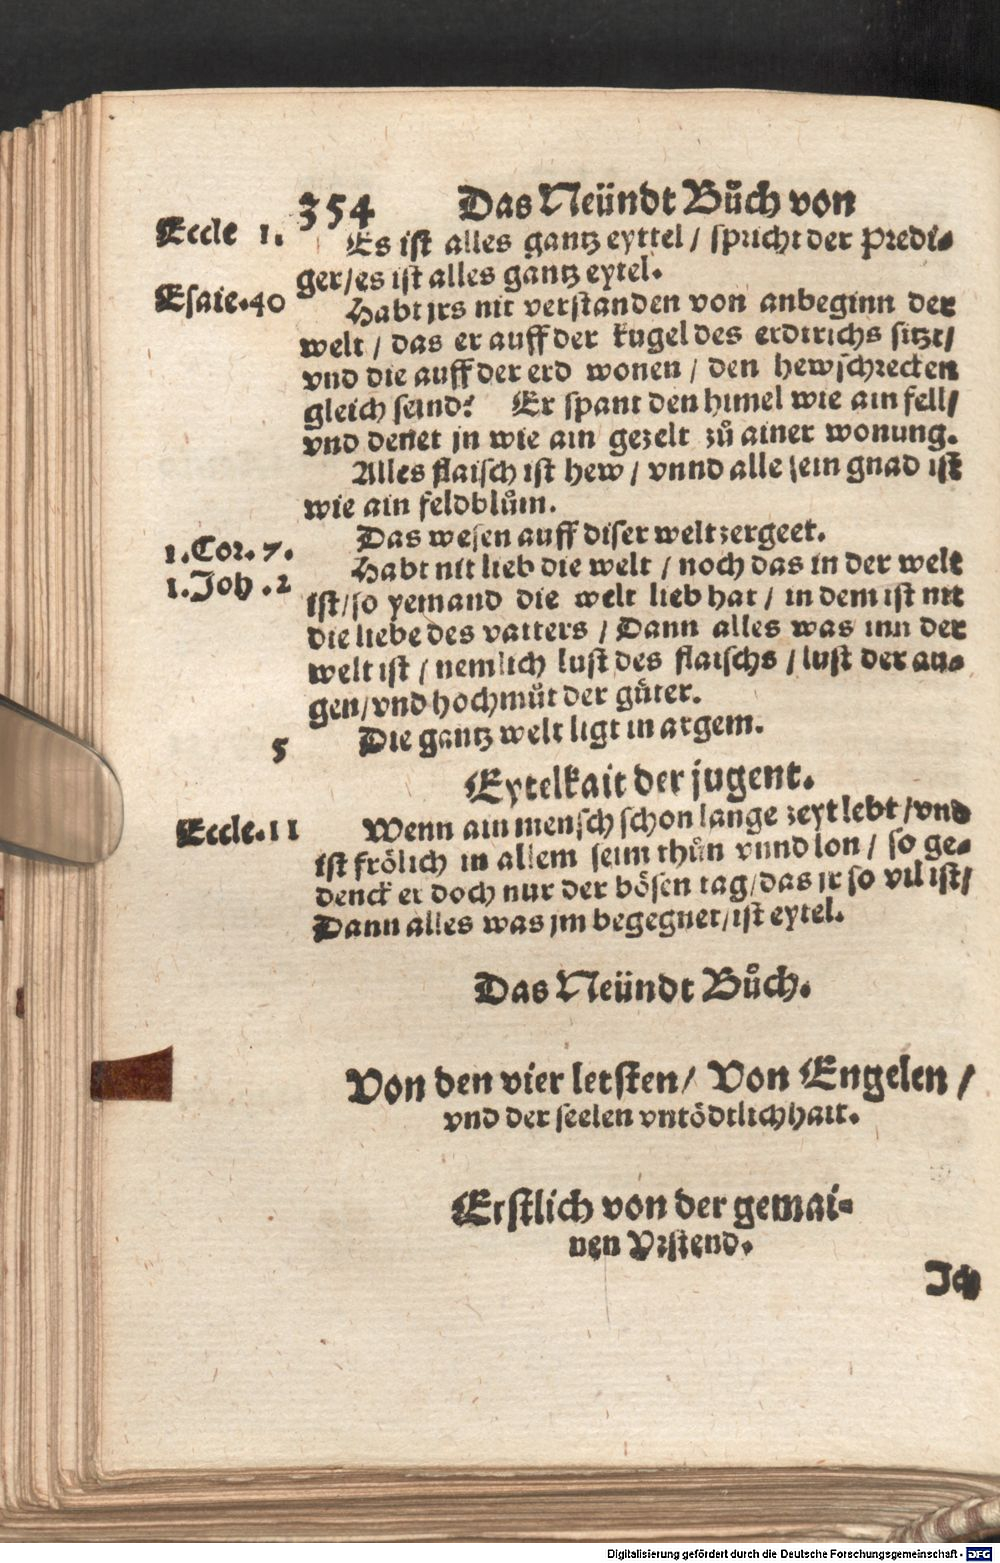 354 Das Neündt Bůch von
Eccle 1. Es ist alles gantz eyttel / spricht der Predi-
ger/es ist alles gantz eytel.
Esaie.40 Habt jrs nit verstanden von anbeginn der
welt / das er auff der kugel des erdtrichs sitzt/
vnd die auff der erd wonen / den hewschrecken
gleich seind? Er spant den himel wie ain fell/
vnd denet jn wie ain gezelt zů ainer wonung.
Alles flaisch ist hew / vnnd alle sein gnad ist
wie ain feldblům.
1.Cor. 7. Das wesen auff diser welt zergeet.
1.Joh .2 Habt nit lieb die welt / noch das in der welt
ist/so yemand die welt lieb hat / in dem ist nit
die liebe des vatters / Dann alles was inn der
welt ist / nemlich lust des flaischs / lust der au-
gen/vnd hochmůt der gůter.
5 Die gantz welt ligt in argem.
Eytelkait der jugent.
Eccle.11 Wenn ain mensch schon lange zeyt lebt /vnd
ist frölich in allem seim thůn vnnd lon / so ge-
denck er doch nur der bösen tag/das jr so vil ist/
Dann alles was jm begegnet/ist eytel.
Das Neündt Bůch.
Von den vier letsten/ Von Engelen /
vnd der seelen vntödtlichhait.
Erstlich von der gemai-
nen Vrstend.
Ich
Digitalisierung gefördert durch die Deutsche Forschungsgemeinschaft - DFG